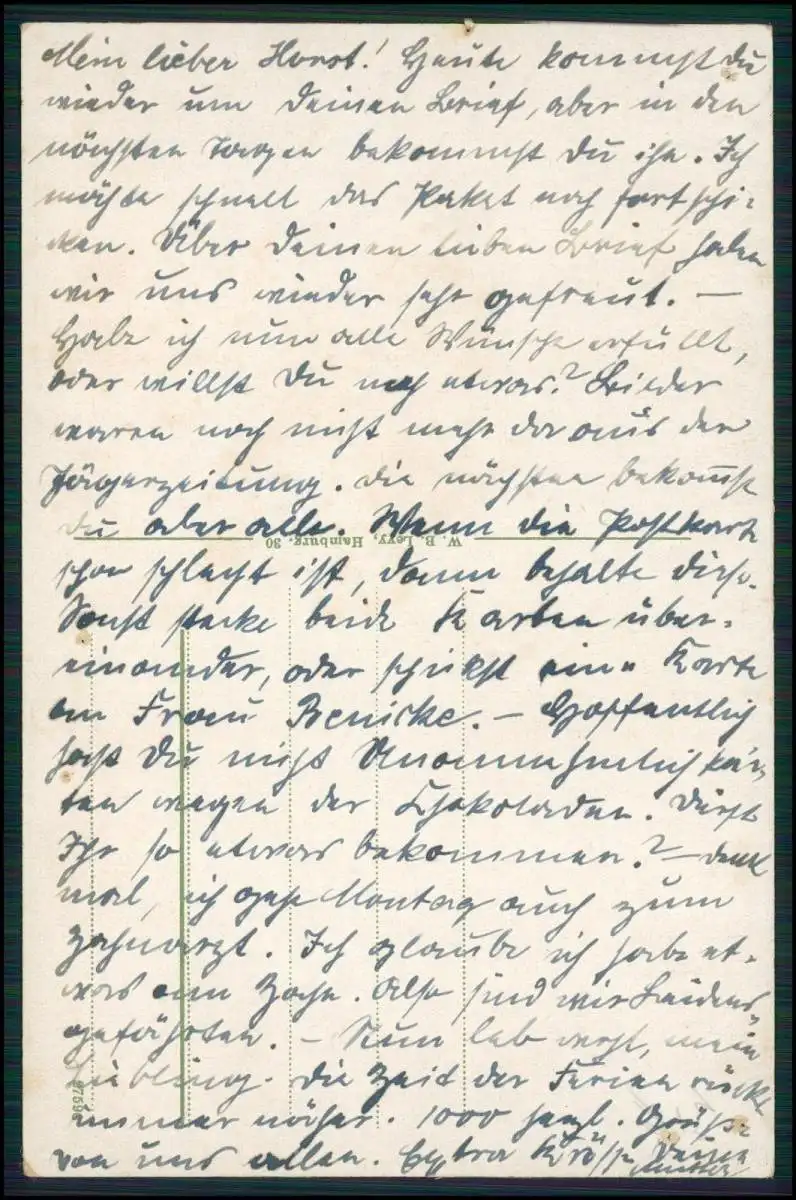 Mein lieber Horst! Heute kommst Du
wieder um Deinen Brief, aber in den
nächsten Tagen bekommst Du ihn. Ich
möchte schnell das Paket noch fortschi-
cken. Über Deinen lieben Brief haben
wir uns wieder sehr gefreut. —
Habe ich nun alle Wünsche erfüllt,
oder willst Du noch etwas? Bilder
waren noch nicht mehr da aus der
Jägerzeitung. Die nächsten bekomst
Du aber alle. Wenn die Postkarte
schon schlecht ist, dann behalte diese.
Sonst stecke beide Karten über-
einander, oder schickst eine Karte
an Frau Renicke. — Hoffentlich
hast Du nicht Unannehmlichkei-
ten wegen der Schokoladen. Dürft
Ihr so etwas bekommen? — Denk
mal, ich gehe Montag auch zum
Zahnarzt. Ich glaube ich habe et-
was am Zahn. Also sind wir Leidens-
gefährten. — Nun leb wohl, mein
Liebling. Die Zeit der Ferien rückt
immer näher. 1000 herzl. Grüße
von uns allen. Extra Küsse Deine
Mutter
W. B. Levy, Hamburg. 30